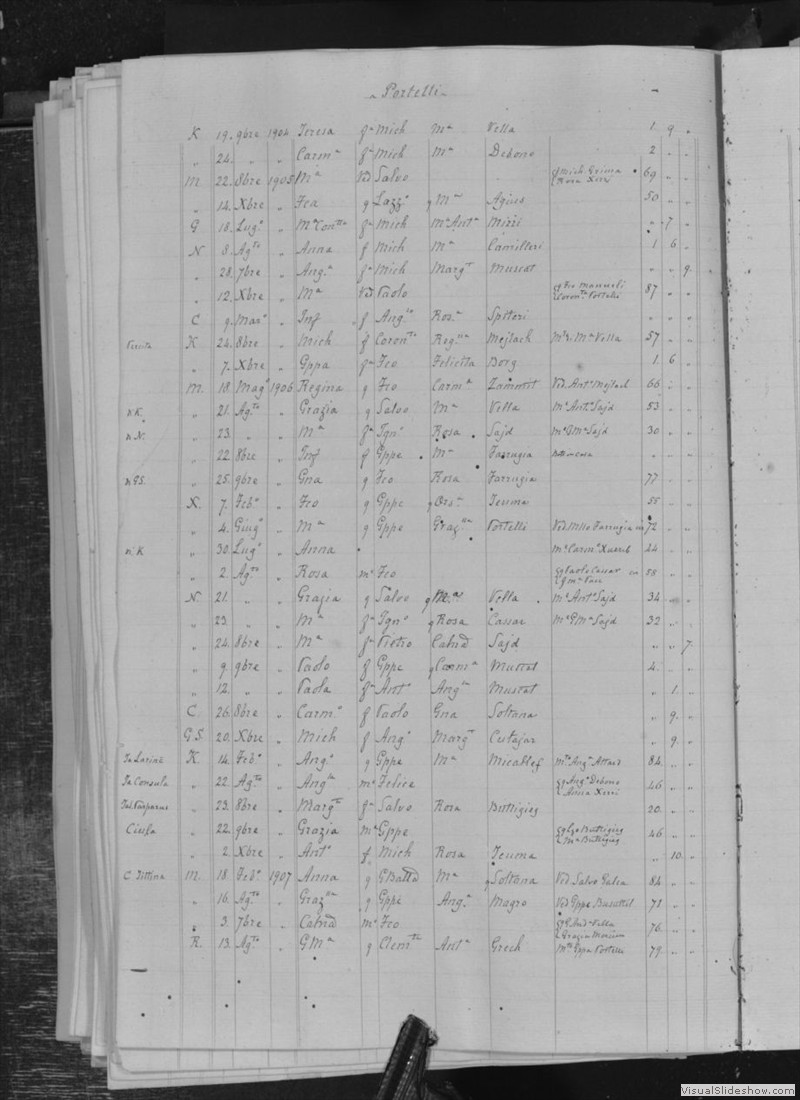 Portelli
K 19. 9bre 1904 Teresa fa Mich Ma Vella 1. 9 „
„ 24. „ „ Carma fa Mich Ma Debono 2 „ „
M. 22. 8bre 1905 Ma Ved Salvo 69 „ „
„ 14. Xbre „ Fca g Lazzo g Ma Agius 50 „ „
G 18. Lugo „ Ma Contta fa Mich Ma Anta Mizzi „ 7 „
N 8. Agto „ Anna f Mich Ma Camilleri 1 6 „
„ 28. 7bre „ Anga fa Mich Margt Muscat „ „ 9.
„ 12. Xbre „ Ma Ved Paolo g Fco Mamueli Portelli 87 „ „
C 9. Maro „ Inf f Anglo Rosa Spiteri „ „ „
K 24. 8bre „ Mich f Corontо Regna Mejlach Mo di Ma Vella 57 „ „
„ 7. Xbre „ Gppa fa Fco Felicita Borg 1. 6 „
M. 18. Mago 1906 Regina g Fco Carma Zammit Ved. Anto Mejlach 66 „ „
n K. „ 21. Agto „ Grazia g Salvo Ma Vella Ma Anto Sajd 53 „ „
n N. „ 23. „ „ Ma fa Igno Rosa Sajd Ma GMa Sajd 30 „ „
„ 22 8bre „ Inf f Gppe Ma Farrugia „ „ „
n GS. „ 25. 9bre „ Gna g Fco Rosa Farrugia 77 „ „
N. 7. Febo „ Fco g Gppe g Orsa Teuma 55 „ „
„ 4. Giugo „ Ma g Gppe Grazna Portelli Ved. Mlle Farrugia 72 „ „
n K „ 30 Lugo „ Anna Ma Carmo Xuereb 24 „ „
„ 2. Agto „ Rosa ma Fco g Paolo Cassar 58 „ „
N. 21. „ „ Grazia g Salvo g Ma Vella Ma Anto Sajd 34 „ „
„ 23. „ „ Ma fa Igno g Rosa Cassar Ma GMa Sajd 32 „ „
„ 24. 8bre „ Ma fa Pietro Catnd Sajd „ „ 7.
„ 9. 9bre „ Paolo f Gppe g Carma Muscat 4. „ „
„ 12. „ „ Paola fa Anto Angla Muscat „ 1. „
C. 26. 8bre „ Carmo f Paolo Gna Soltana „ 9. „
G.S. 20. Xbre „ Mich f Ango Margt Cutajar „ 9 „
K. 14. Febo „ Ango g Gppe Ma Micallef Mo Anga Attard 84. „ „
Ta Consula „ 22. Agto „ Angla ma Felice g Ango Debono Anna Xerri 46 „ „
„ 23. 8bre „ Margta fa Salvo Rosa Buttigieg 20. „ „
„ 22. 9bre „ Grazia ma Gppe Buttigieg Ma Buttigieg 46 „ „
„ 2. Xbre „ Anto f Mich Rosa Teuma „ 10. „
M. 18 Febo 1907 Anna g GBatta Ma g Soltana Ved. Salvo Galea 84 „ „
„ 16. Agto „ Grazna g Gppe Anga Magro Ved Gppe Busuttil 71 „ „
„ 3. 7bre „ Catnd ma Fco Vella Grazia 76. „ „
K. 13. Agto „ GMa g Clemte Anta Grech Mto Gppa Portelli 79. „ „
VisualSlideshow.com